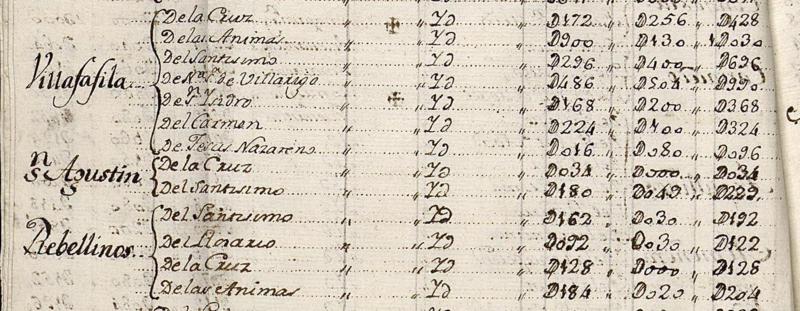 De la Cruz " " Yd " D172 " D256 " D428
De las Animas " " Yd " D900 " D130 " 1D030
Del Santisimo " " Yd " D296 " D400 " D696
Villafafila De Nª Sª de Villarigo " " Yd " D486 " D504 " D990
De Sn Isidro " " Yd " D168 " D200 " D368
Del Carmen " " Yd " D224 " D100 " D324
De Jesus Nazareno " " Yd " D016 " D080 " D096
Sn Agustin De la Cruz " " Yd " D034 " D000 " D034
Del Santisimo " " Yd " D180 " D049 " D229
Del Santisimo " " Yd " D162 " D030 " D192
Rebellinos Del Rosario " " Yd " D092 " D030 " D122
De la Cruz " " Yd " D128 " D000 " D128
De las Animas " " Yd " D184 " D020 " D204